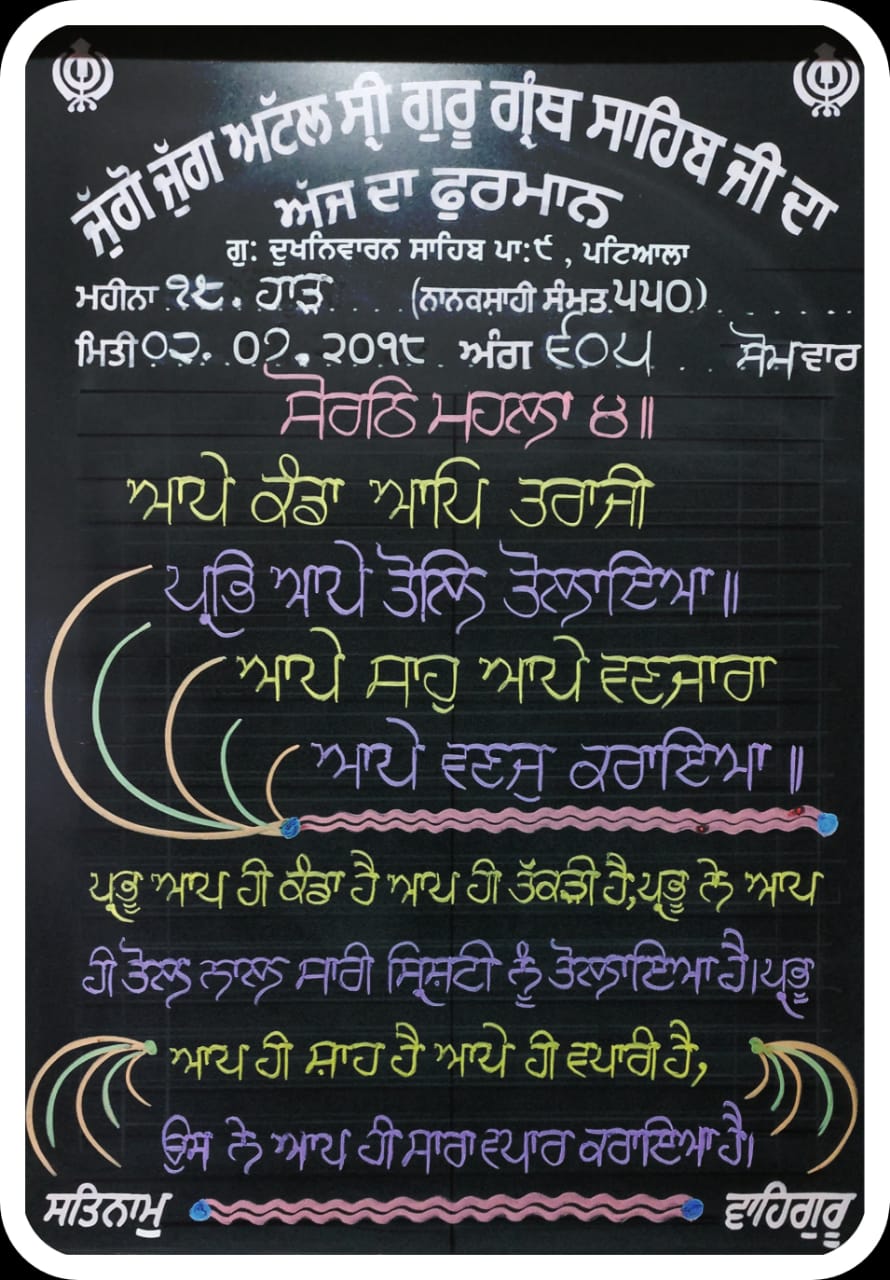 ਜੁੱਗੋ ਜੁੱਗ ਅੱਟਲ ਸ੍ਰੀ ਗੁਰੂ ਗ੍ਰੰਥ ਸਾਹਿਬ ਜੀ ਦਾ
ਅੱਜ ਦਾ ਫੁਰਮਾਨ
ਗੁ: ਦੁਖਨਿਵਾਰਨ ਸਾਹਿਬ ਪਾ:੯ , ਪਟਿਆਲਾ
ਮਹੀਨਾ ੧੮. ਹਾੜ (ਨਾਨਕਸਾਹੀ ਸੰਮਤ ੫੫੦)
ਮਿਤੀ ੦੨. ੦੭. ੨੦੧੮ ਅੰਗ ੬੦੫ ਸੋਮਵਾਰ
ਸੋਰਠਿ ਮਹਲਾ ੪॥
ਆਪੇ ਕੰਡਾ ਆਪਿ ਤਰਾਜੀ
ਪ੍ਰਭਿ ਆਪੇ ਤੋਲਿ ਤੋਲਾਇਆ॥
ਆਪੇ ਸਾਹੁ ਆਪੇ ਵਣਜਾਰਾ
ਆਪੇ ਵਣਜੁ ਕਰਾਇਆ॥
ਪ੍ਰਭੂ ਆਪ ਹੀ ਕੰਡਾ ਹੈ ਆਪ ਹੀ ਤੱਕੜੀ ਹੈ,ਪ੍ਰਭੂ ਨੇ ਆਪ
ਹੀ ਤੋਲ ਨਾਲ ਸਾਰੀ ਸ੍ਰਿਸ਼ਟੀ ਨੂੰ ਤੋਲਾਇਆ ਹੈ।ਪ੍ਰਭੂ
ਆਪ ਹੀ ਸ਼ਾਹ ਹੈ ਆਪੇ ਹੀ ਵਪਾਰੀ ਹੈ,
ਉਸ ਨੇ ਆਪ ਹੀ ਸਾਰਾ ਵਪਾਰ ਕਰਾਇਆ ਹੈ।
ਸਤਿਨਾਮੁ ਵਾਹਿਗੁਰੂ